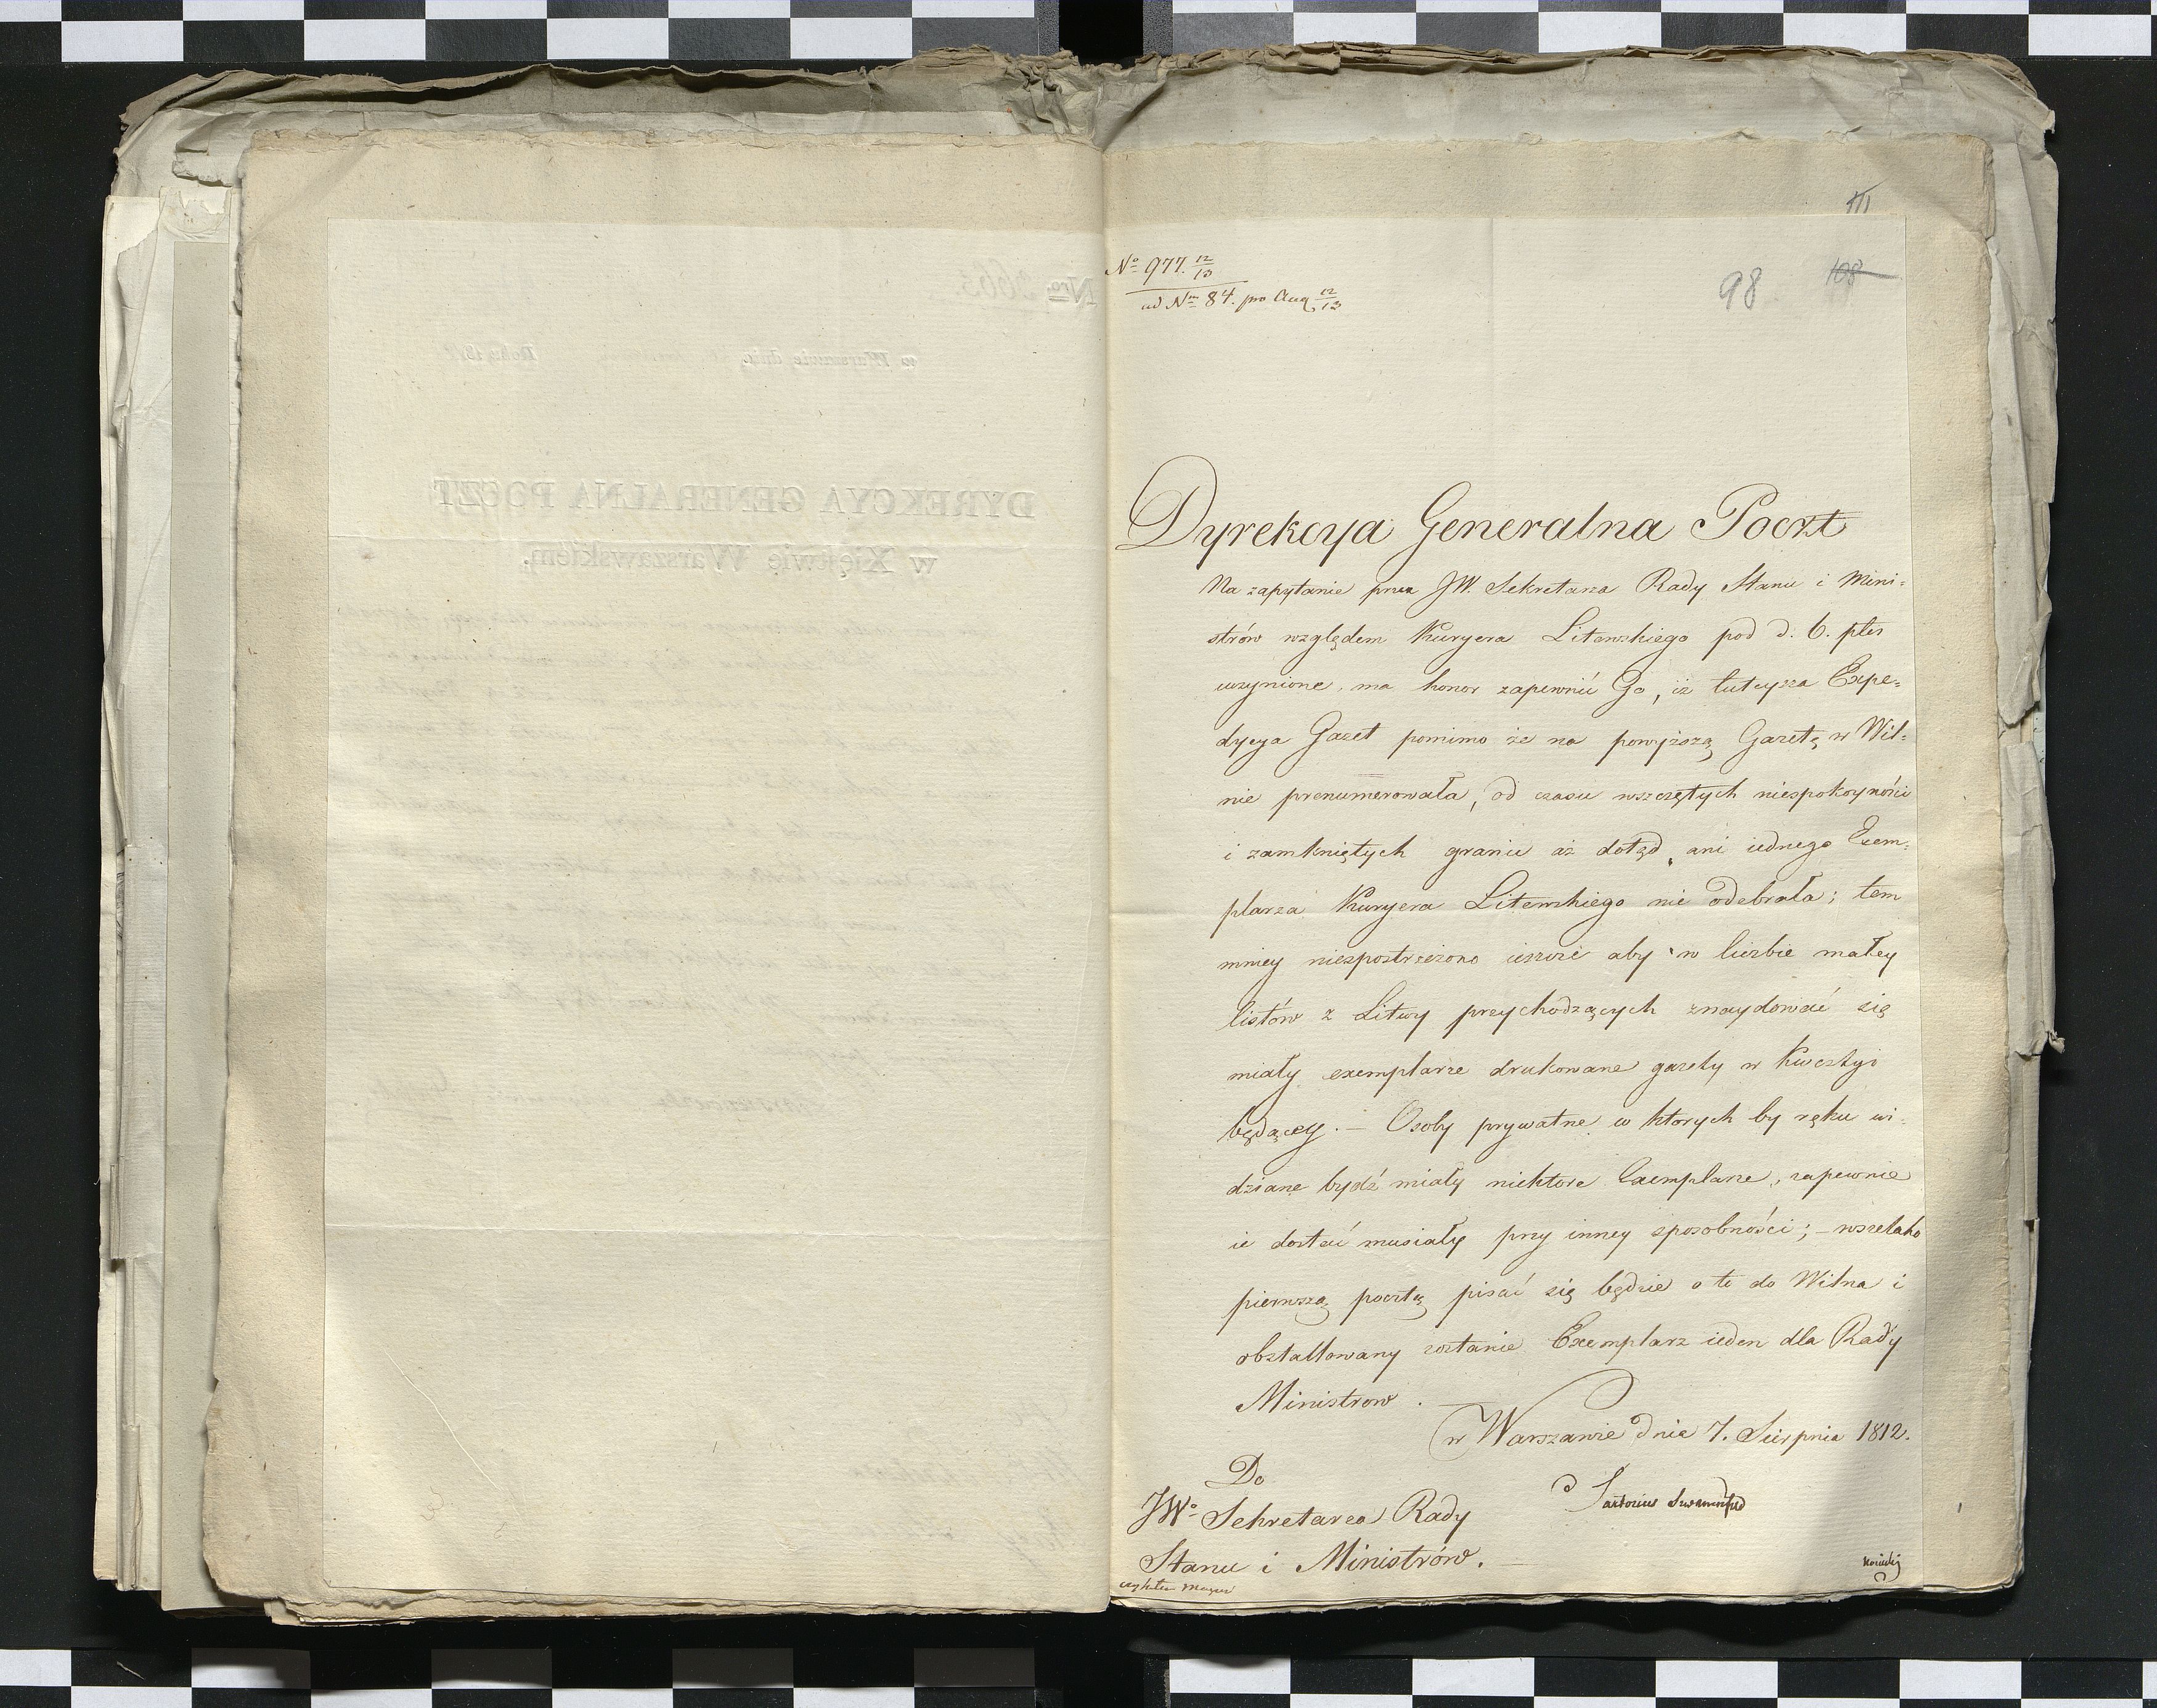 111
No 977. 12/13
ad Nm 84. pro Aug 12/13
98 108
Dyrekcya Generalna Poczt
Na zapytanie przez JW. Sekretarza Rady Stanu i Mini-
strów względem Kuryera Litewskiego pod d. 6.
uczynione, ma honor zapewnić Go, iż tuteysza Expe-
dycya Gazet pomimo że na powyższą Gazetę w Wil-
nie prenumerowała, od czasu wszczętych niespokoyności
i zamkniętych granic aż dotąd, ani iednego Exem-
plarza Kuryera Litewskiego nie odebrała; tem
mniey niespostrzeżono ieszcze aby w liczbie małey
listów z Litwy przychodzących znaydować się
miały exemplarze drukowane gazety w Kwestyi
będącey. — Osoby prywatne w ktorych by ręku wi-
dziane bydź miały niektore Exemplarze, zapewnie
ie dostać musiały przy inney sposobności; — wszelako
pierwszą pocztą pisać się będzie o to do Wilna i
obstallowany zostanie Exemplarz ieden dla Rady
Ministrow. —
w Warszawie dnia 7. Sierpnia 1812.
Do
Sartorius
JWo Sekretarza Rady
Stanu i Ministrów. —
Nro 2663
w Warszawie dnia Roku 181
DYREKCYA GENERALNA POCZT
w Xięstwie Warszawskiem.